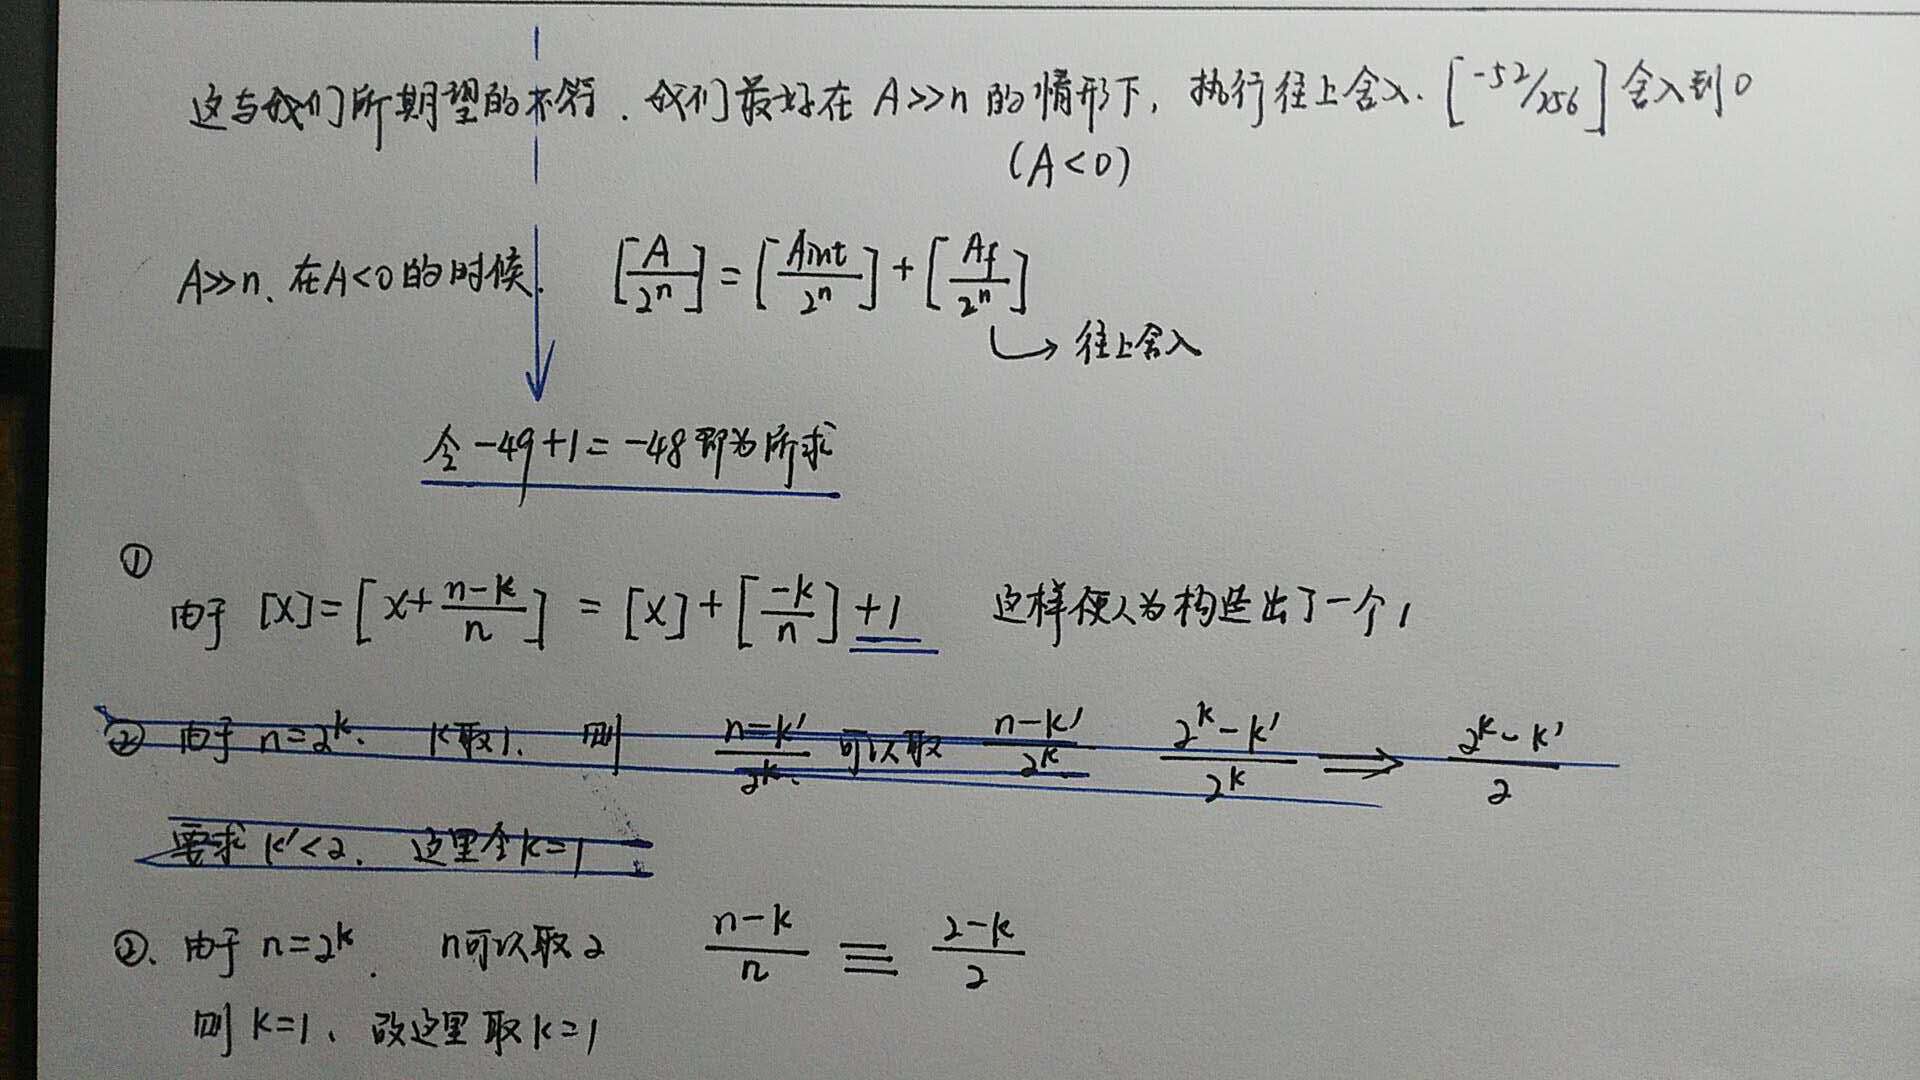 这与我们所期望的不符. 我们最好在 A>>n 的情形下, 执行往上舍入. [-52/256] 舍入到0
(A<0)
A>>n、在A<0的时候. [A/2ⁿ] = [Aint/2ⁿ] + [Af/2ⁿ]
↳ 往上舍入
令 -49+1 = -48 即为所求
①
由于 [X] = [x + (n-k)/n] = [x] + [-k/n] +1 这样便人为构造出了一个1
② 由于 n=2ᵏ. k取1. 则 (n-k')/2ᵏ. 可以取 (n-k')/2ᵏ (2ᵏ-k')/2ᵏ ⟹ (2ᵏ-k')/2
要求 k'<2. 这里令k=1
②. 由于 n=2ᵏ. n可以取2 (n-k)/n ≡ (2-k)/2
则 k=1、故这里取k=1